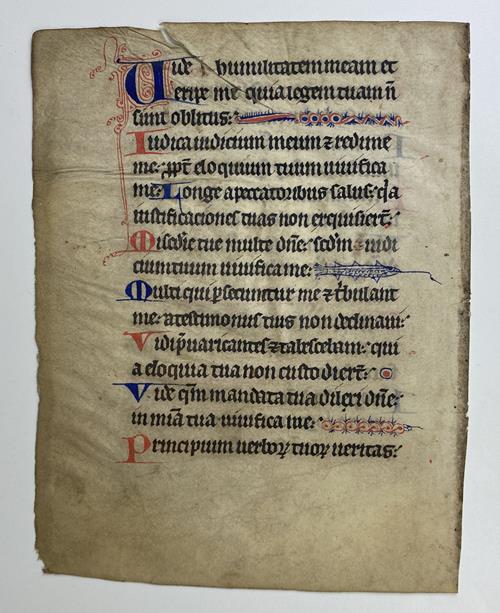 Vide humilitatem meam et
eripe me quia legem tuam nͫ
sum oblitus:
Iudica iudicium meum ⁊ redime
me: ꝓpt̄ eloquium tuum uiuifica
me: Longe a peccatoribus salus: q̄a
iustificaciones tuas non exquisiert̄:
Miẜcdie tue multe dn̄e: scd̄m iudi
cium tuum uiuifica me:
Multi qui ꝑsecuntur me ⁊ tͥbulant
me: a testimoniis tuis non declinaui:
Vidi p̄uaricantes ⁊ tabescebam: qui
a eloquia tua non custodiert̄:
Vide qm̄ mandata tua dilexi dn̄e:
in mīa tua uiuifica me:
Principium uerboꝝ tuoꝝ ueritas: